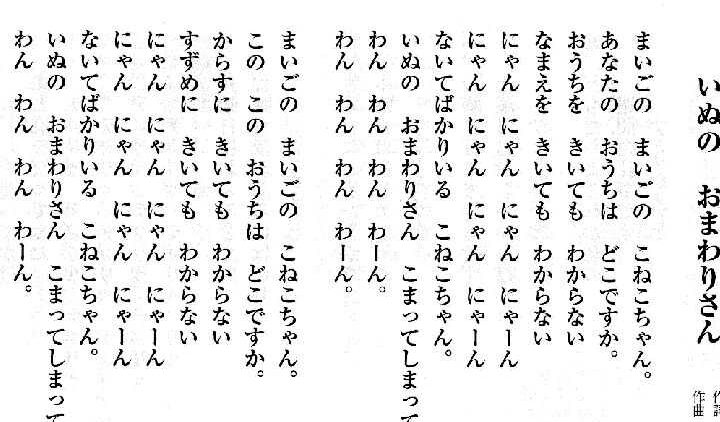 いぬの おまわりさん
作詞
作曲
まいごの まいごの こねこちゃん。
あなたの おうちは どこですか。
おうちを きいても わからない
なまえを きいても わからない
にゃん にゃん にゃん にゃーん
にゃん にゃん にゃん にゃーん
ないてばかりいる こねこちゃん。
いぬの おまわりさん こまってしまって
わん わん わん わーん。
わん わん わん わーん。
まいごの まいごの こねこちゃん。
この この おうちは どこですか。
からすに きいても わからない
すずめに きいても わからない
にゃん にゃん にゃん にゃーん
にゃん にゃん にゃん にゃーん
ないてばかりいる こねこちゃん。
いぬの おまわりさん こまってしまって
わん わん わん わーん。